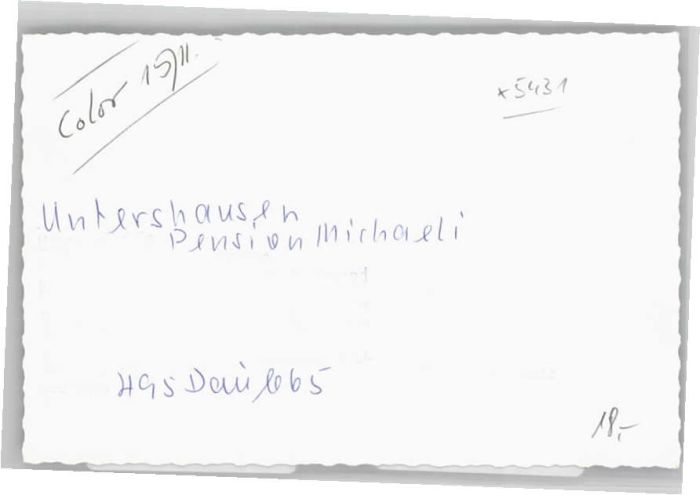 Color 15/11.
x5431
Untershausen
Pension Michaeli
18,-